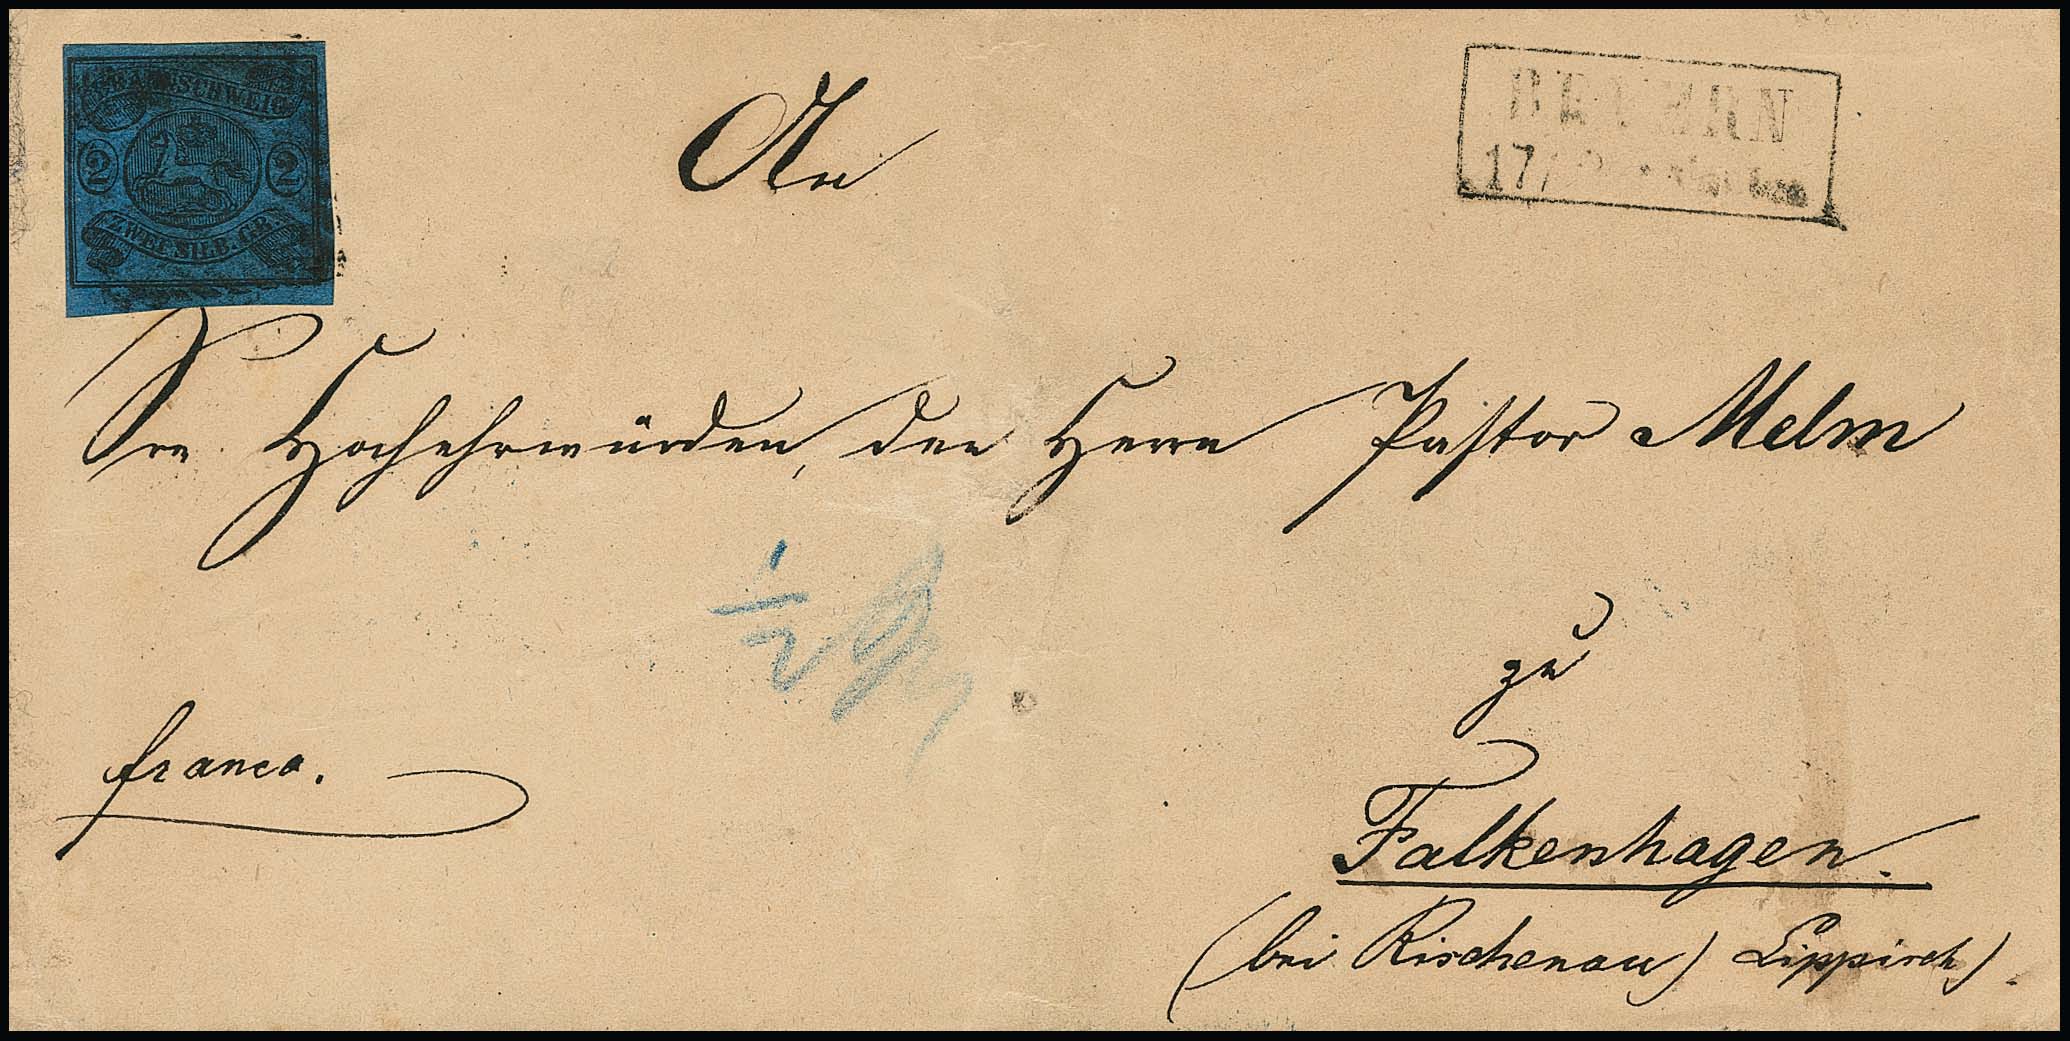 BRAUNSCHWEIG
2 2
ZWEI SILB. GR.
BEVERN
17/
An
Sr. Hochehrwürden, den Herrn Pastor Melm
1/2
zu
franco.
Falkenhagen.
(bei Rischenau) Lippisch).